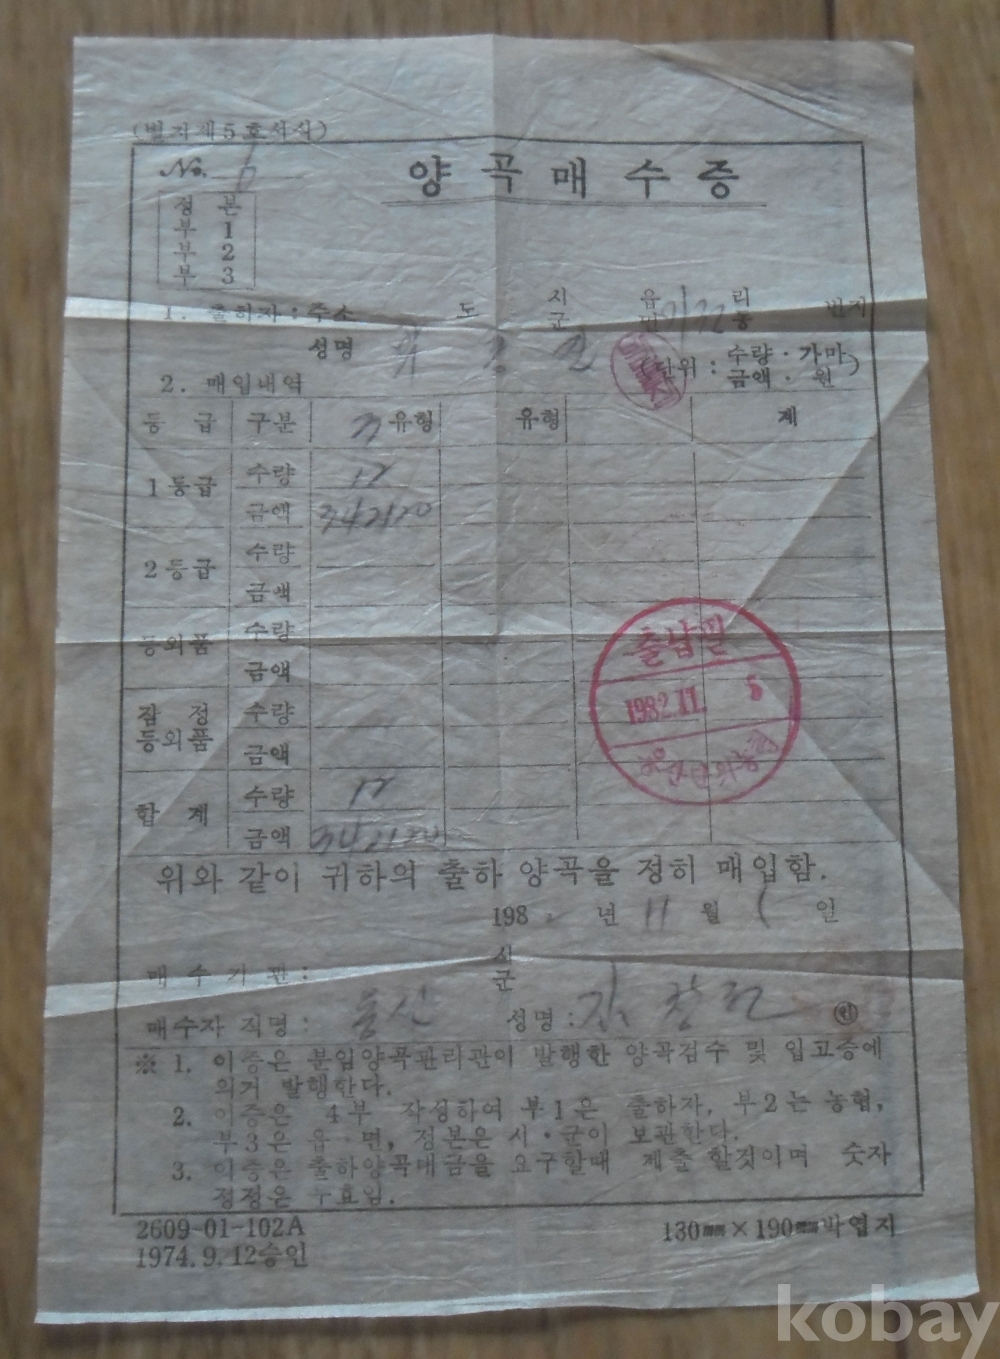 (별지제5호서식)
No. 6
양곡매수증
정본
부 1
부 2
부 3
1. 출하자 : 주소 도 시 군 읍 면 리 동 번지
성명
(단위 : 수량 · 가마 금액 · 원)
2. 매입내역
등급 구분 유형 유형 계
1등급 수량 12
금액 342120
2등급 수량
금액
등외품 수량
금액
잠정 등외품 수량
금액
합계 수량 12
금액 342120
출납필
1982.11. 5
위와 같이 귀하의 출하 양곡을 정히 매입함.
198 년 11 월 1 일
매수기관 : 시 군
매수자 직명 : 성명 : 김 ㊞
※ 1. 이증은 분임양곡관리관이 발행한 양곡검수 및 입고증에
의거 발행한다.
2. 이증은 4부 작성하여 부1은 출하자, 부2는 농협,
부3은 읍·면, 정본은 시·군이 보관한다.
3. 이증은 출하양곡대금을 요구할때 제출할것이며 숫자
정정은 무효임.
2609-01-102A
1974.9.12승인
130㎜×190㎜박엽지
kobay